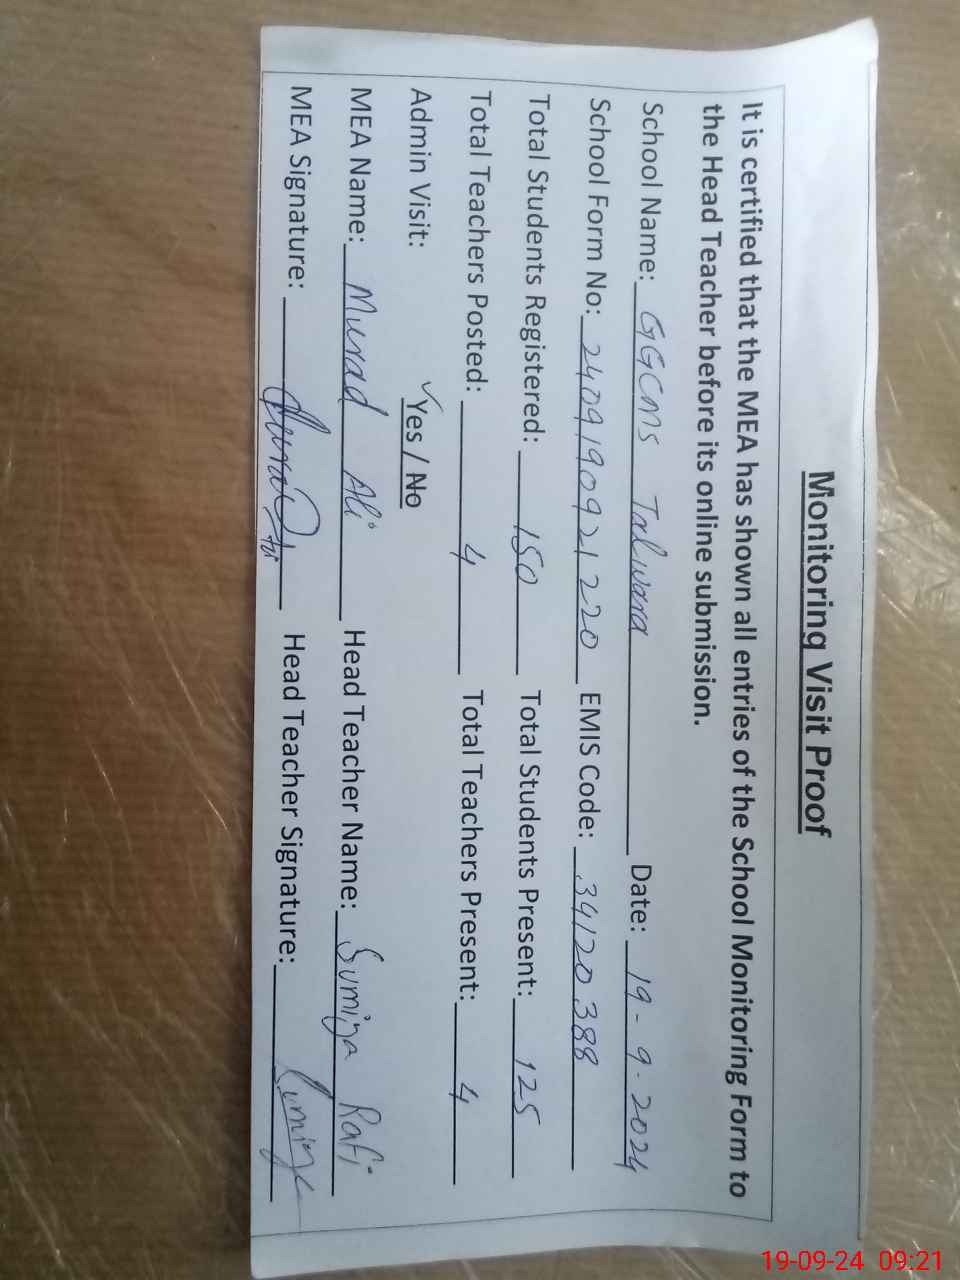 Monitoring Visit Proof
It is certified that the MEA has shown all entries of the School Monitoring Form to
the Head Teacher before its online submission.
School Name: GGCMS Talwara Date: 19-9-2024
School Form No: 2409190921220 EMIS Code: 34120388
Total Students Registered: 150 Total Students Present: 125
Total Teachers Posted: 4 Total Teachers Present: 4
Admin Visit: ✓Yes / No
MEA Name: Murad Ali Head Teacher Name: Sumiya Rafi
MEA Signature: Head Teacher Signature: Sumiya
19-09-24 09:21